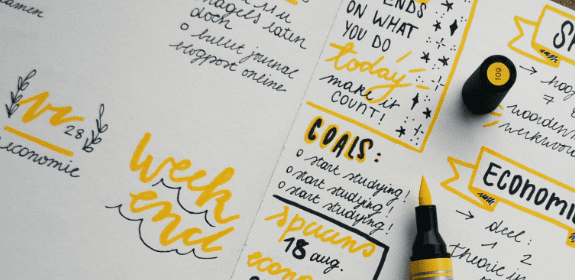 nagels laten
doen
o bullet journal
blogpost online
vr
28
economie
week
end
ENDS
ON WHAT
YOU DO
today
make it
COUNT!
GOALS:
o start studying!
o start studying!
o start studying!
spaans
18 aug.
econo
109
SP
→ hoo
woorden
werkwoo
ECONOMI
→ deel:
1 2
theorie in